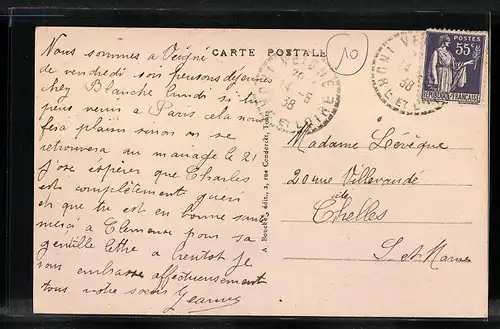 CARTE POSTALE
10
POSTES
55c
REPUBLIQUE FRANÇAISE
VEIGNÉ
INDRE-ET-LOIRE
14
38
Nous sommes à Veigné
de vendredi soir pensons déjeuner
chez Blanche lundi si tu
peux venir à Paris cela nous
fera plaisir sinon on se
retrouvera au mariage le 21
J'ose espérer que Charles
est complètement guéri
et que tu est en bonne santé
merci à Clémence pour sa
gentille lettre à bientôt je
vous embrasse affectueusement
tous votre soeur Jeanne
A. Bouché, édit., 2, rue Tours
Madame Lévêque
20 rue Villevaudé
Chelles
S. et Marne